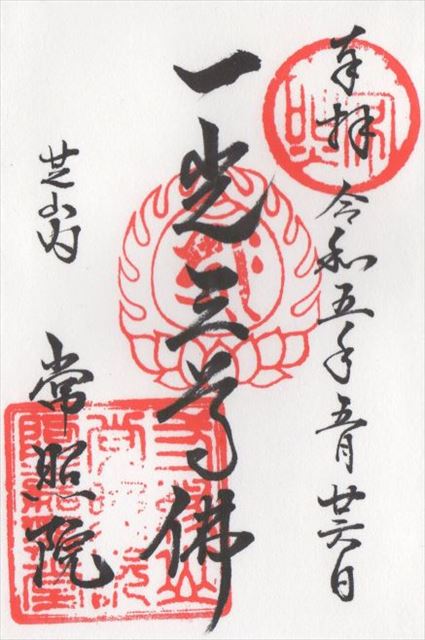 奉拝 令和五年五月廿六日
一光三尊佛
芝山内
常照院